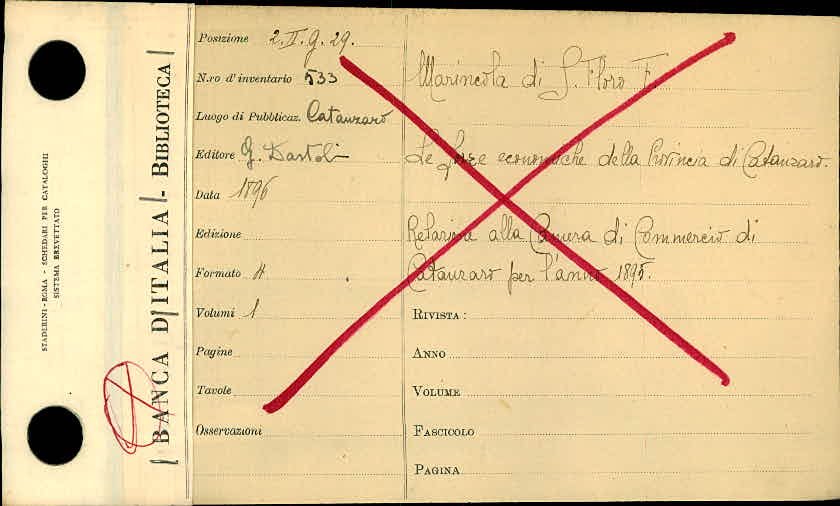 STADERINI - ROMA - SCHEDARI PER CATALOGHI
SISTEMA BREVETTATO
BANCA D'ITALIA - BIBLIOTECA
Posizione 2. II. g. 29.
N.ro d'inventario 533
Luogo di Pubblicaz. Catanzaro
Editore G. Dastoli
Data 1896
Edizione
Formato 4
Volumi 1
Pagine
Tavole
Osservazioni
Marincola di S. Floro F.
Le forze economiche della Provincia di Catanzaro.
Relazione alla Camera di Commercio di
Catanzaro per l'anno 1895.
RIVISTA :
ANNO
VOLUME
FASCICOLO
PAGINA